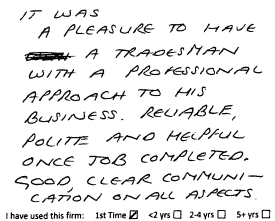 IT WAS
A PLEASURE TO HAVE
A TRADESMAN
WITH A PROFESSIONAL
APPROACH TO HIS
BUSINESS. RELIABLE,
POLITE AND HELPFUL
ONCE JOB COMPLETED.
GOOD, CLEAR COMMUNI-
CATION ON ALL ASPECTS.
I have used this firm: 1st Time ☑ <2 yrs ☐ 2-4 yrs ☐ 5+ yrs ☐